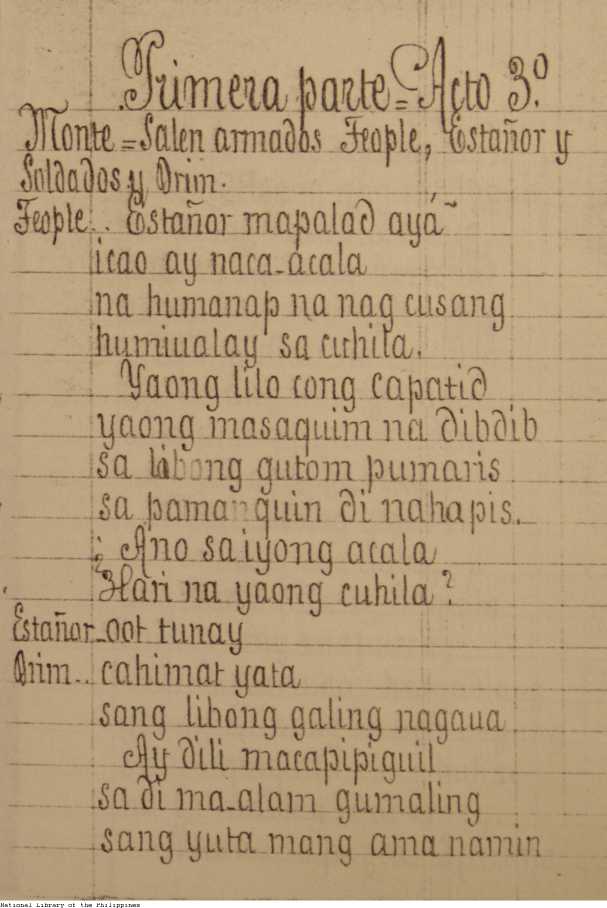 Primera parte = Acto 3.º
Monte = Salen armados Feople, Estañor y
Soldados y Orim.
Feople.. Estañor mapalad ayá
icao ay naca-acala
na humanap na nag cusang
humiualay sa cuhila.
Yaong lilo cong capatid
yaong masaquim na dibdib
sa libong gutom pumaris
sa pamanguin di nahapis.
¿Ano sa iyong acala
Hari na yaong cuhila?
Estañor_oot tunay
Orim.. cahimat yata
sang libong galing nagaua
Ay dili macapipiguil
sa di ma-alam gumaling
sang yuta mang ama namin
National Library of the Philippines